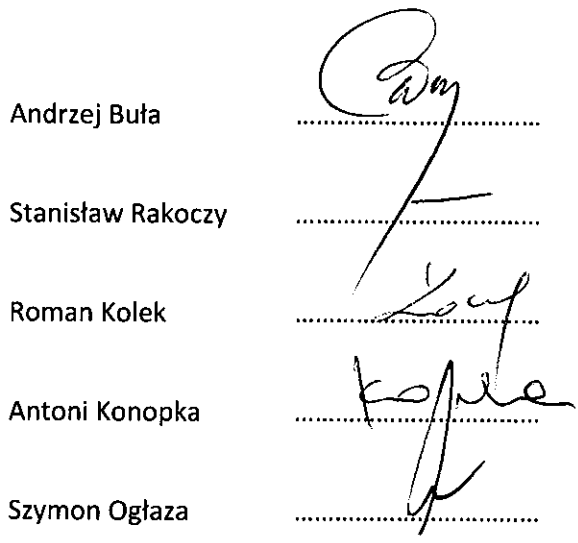 Andrzej Buła
Stanisław Rakoczy
Roman Kolek
Antoni Konopka
Szymon Ogłaza